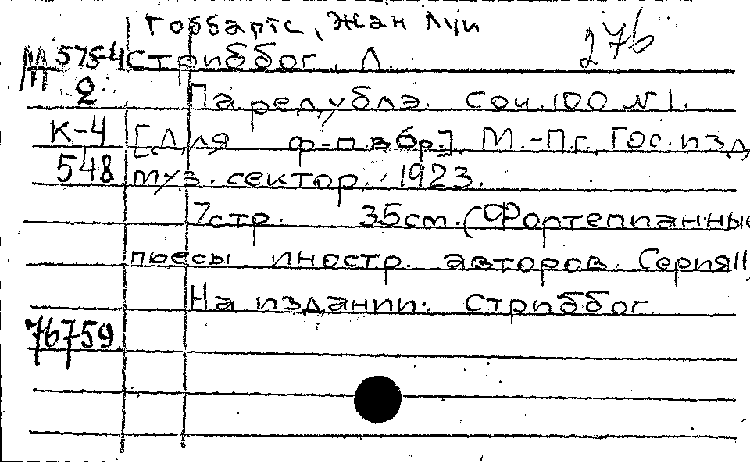 Гоббартс, Жан Луи
276
М 575-4 Стриббог, Л.
2 Па редубла. Соч. 100 №1.
К-4 [Для ф-п. в обр.]. М.-Пг., Гос. изд.
548 муз. сектор. 1923.
7 стр. 35 см. (Фортепианные
пьесы иностр. авторов. Серия II
На издании: Стриббог
76759